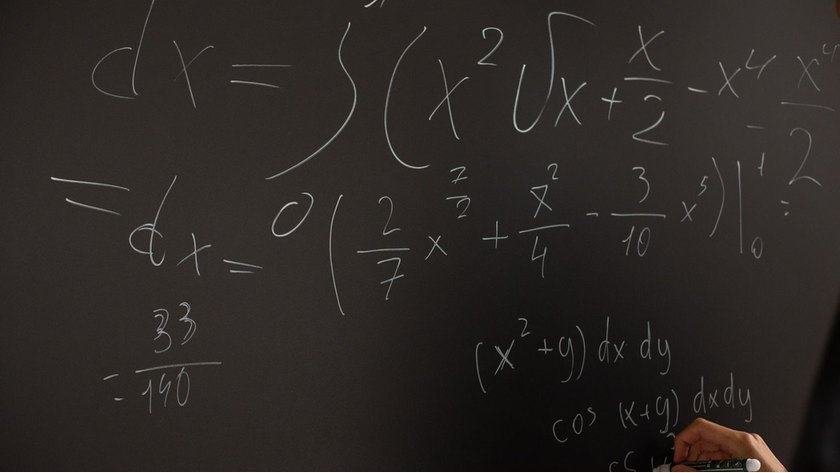 dx = ∫ (x² √x + x/2 - x⁴ - x⁴/2
= dx = 0 (2/7 x^(7/2) + x²/4 - 3/10 x⁵) |₀¹ =
= 33/140
(x² + y) dx dy
cos (x+y) dxdy